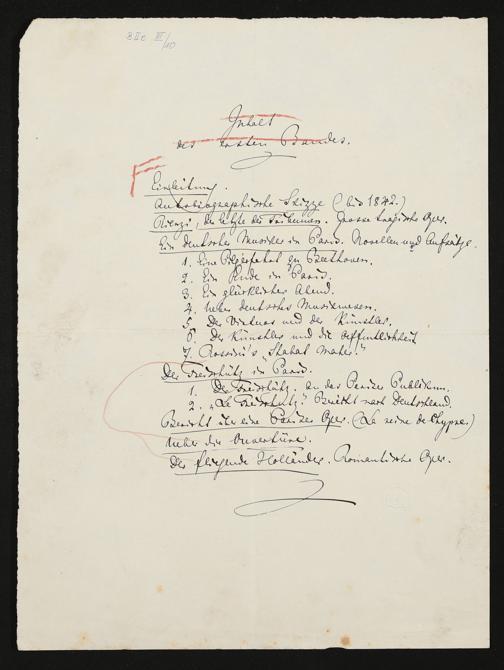 Inhalt
des ersten Bandes.
Einleitung.
Autobiographische Skizze (bis 1842.)
Rienzi, der letzte der Tribunen. Grosse tragische Oper.
Ein deutscher Musiker in Paris. Novellen und Aufsätze.
1. Eine Pilgerfahrt zu Beethoven.
2. Ein Ende in Paris.
3. Ein glücklicher Abend.
4. Ueber deutsches Musikwesen.
5. Der Virtuos und der Künstler.
6. Der Künstler und die Oeffentlichkeit
7. Rossini's „Stabat mater."
Der Freischütz in Paris.
1. Der Freischütz. an das Pariser Publikum.
2. „Le Freischutz." Bericht nach Deutschland.
Bericht über eine Pariser Oper. (La reine de Chypre.)
Ueber die Ouvertüre.
Der fliegende Holländer. Romantische Oper.